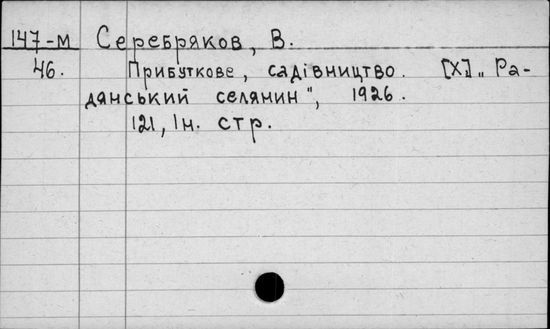 147-м Серебряков, В.
46. Прибуткове, садівництво. [Х] „Ра-
дянський селянин", 1926.
121, 1н. стр.